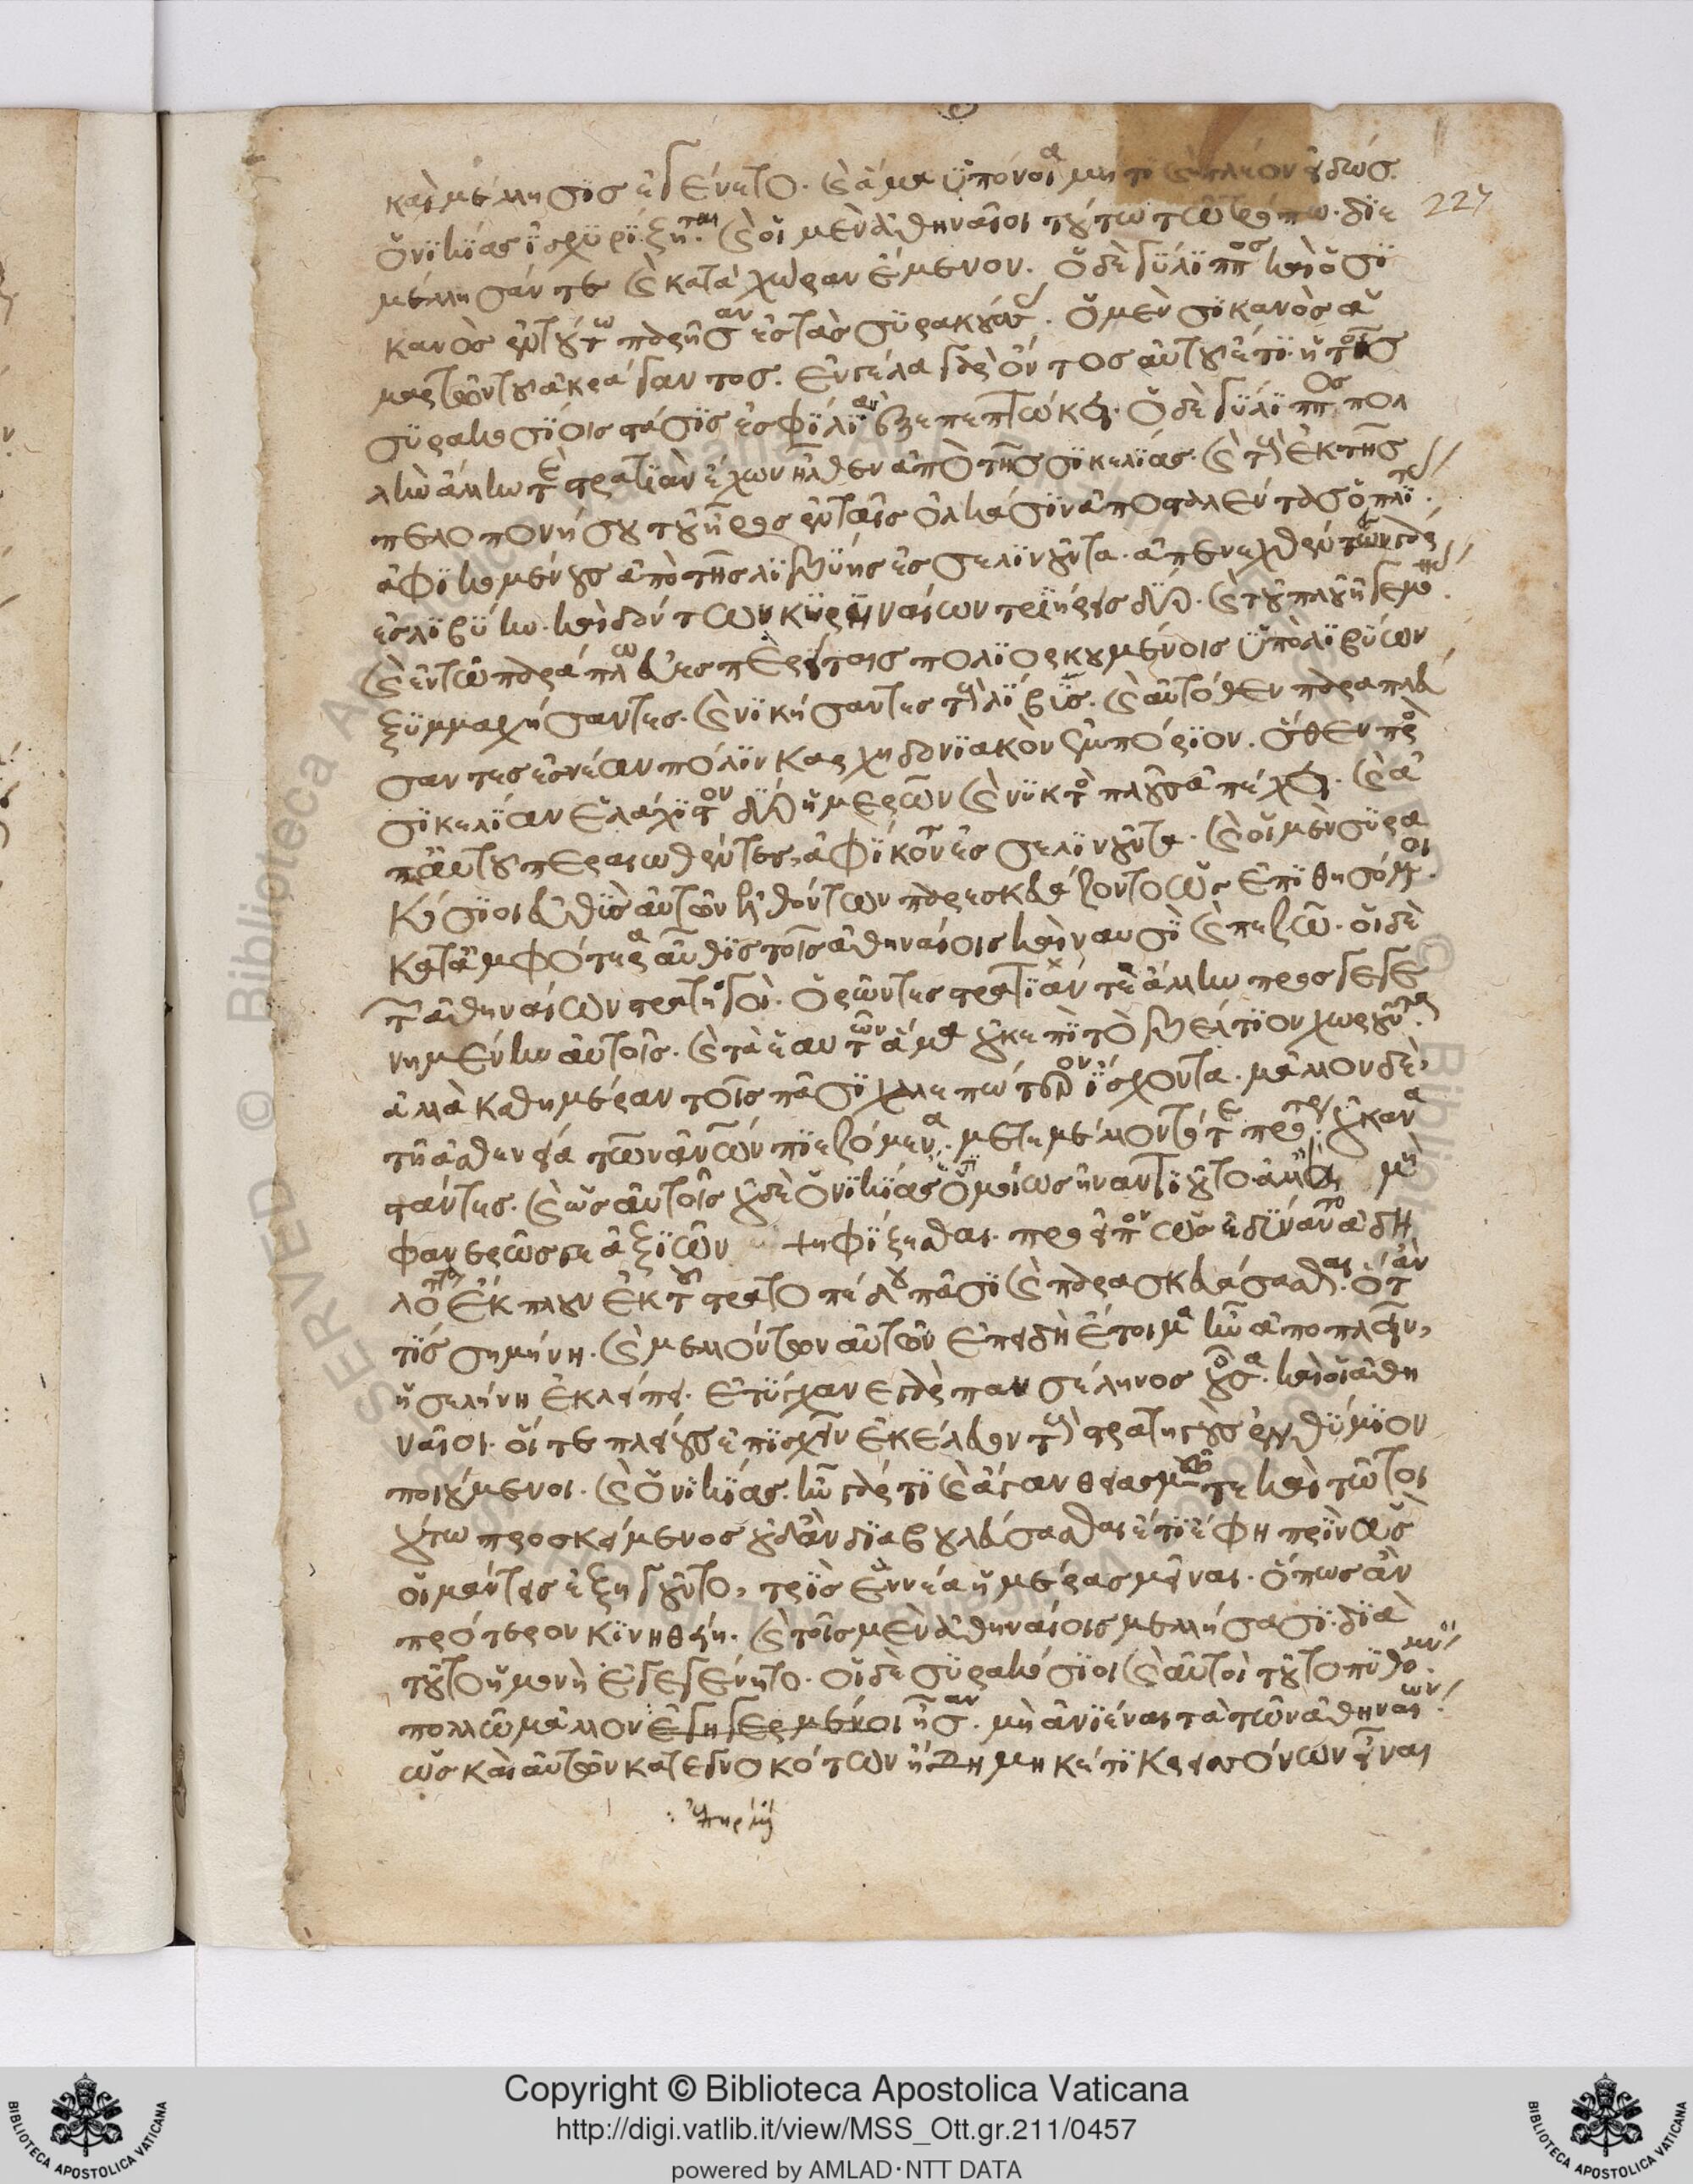 καὶ μέλλησις ἐγένετο· καὶ ἅμα ὑπόνοια μή τι καὶ πλέον εἰδὼς
ὁ νικίας ἰσχυρίζηται· καὶ οἱ μὲν ἀθηναῖοι τούτω τῶ τρόπω· διε
μέλλησάν τε καὶ κατὰ χώραν ἔμενον. ὁ δὲ γύλιππος καὶ ὁ σι
κανὸς ἐν τούτω παρῆσαν ἐς τὰς συρακούσας. ὁ μὲν σικανὸς ἁ
μαρτὼν τοῦ ἀκράγαντος. ἐν γέλα γὰρ ὄντος αὐτοῦ ἔτι· ἡ τοῖς
συρακοσίοις στάσις ἐς φίλια ἐξεπεπτώκει· ὁ δὲ γύλιππος πολ
λὴν ἄλλην τε στρατιὰν ἔχων ἦλθεν ἀπὸ τῆς σικελίας. καὶ τοὺς ἐκ τῆς
πελοπονήσου τοῦ ἦρος ἐν ταῖς ὁλκάσιν ἀποσταλέντας ὁπλίτας
ἀφικομένους ἀπὸ τῆς λιβύης ἐς σελινοῦντα. ἀπενεχθέντων γὰρ
ἐς λιβύην. καὶ δόντων κυρηναίων τριήρεις δύο. καὶ τοῦ πλοῦ ἡγεμόνας
καὶ ἐν τῶ παράπλω εὐεσπερίταις πολιορκουμένοις ὑπὸ λιβύων
ξυμμαχήσαντες. καὶ νικήσαντες τοὺς λίβυς. καὶ αὐτόθεν παραπλεύ
σαντες ἐς νέαν πόλιν καρχηδονιακὸν ἐμπόριον. ὅθεν πρὸς
σικελίαν ἐλάχιστον δύο ἡμερῶν καὶ νυκτὸς πλοῦς ἀπέχει. καὶ ἀ
π' αὐτοῦ περαιωθέντες, ἀφίκοντο ἐς σελινοῦντα. καὶ οἱ μὲν συρα
κόσιοι εὐθὺς αὐτῶν ἐλθόντων παρεσκευάζοντο ὡς ἐπιθησόμενοι
κατ' ἀμφότερα αὖθις τοῖς ἀθηναίοις καὶ ναυσὶ καὶ πεζῶ. οἱ δὲ
τῶν ἀθηναίων στρατηγοὶ. ὁρῶντες στρατιάν τε ἄλλην προσγεγε
νημένην αὐτοῖς. καὶ τὰ ἑαυτῶν ἅμα οὐκ ἐπὶ τὸ βέλτιον χωροῦντα
ἀλλὰ καθ' ἡμέραν τοῖς πᾶσι χαλεπώτερον ἴσχοντα. μάλλον δὲ
τῆ ἀσθενεία τῶν ἀνθρώπων πιεζόμενα. μετεμέλοντό τε πρότερον οὐκ ἀνα
στάντες. καὶ ὡς αὐτοῖς οὐδὲ ὁ νικίας ἔτι ὁμοίως ἠναντιοῦτο ἀλλ' εἰ μὴ
φανερῶς γε ἀξιῶν ψηφίζεσθαι. προεῖπον ὡς ἐδύναντο ἀδη
λότατα ἔκπλουν ἐκ τοῦ στρατοπέδου πᾶσι καὶ παρασκευάσασθαι. ὅταν
τις σημήνη. καὶ μελλόντων αὐτῶν ἐπειδὴ ἑτοῖμα ἦν ἀποπλεῖν,
ἡ σελήνη ἐκλείπει. ἐτύγχανε γὰρ πανσέληνος οὖσα. καὶ οἱ ἀθη
ναῖοι. οἵ τε πλείους ἐπισχεῖν ἐκέλευον τοὺς στρατηγοὺς ἐνθύμιον
ποιούμενοι. καὶ ὁ νικίας. ἦν γάρ τι καὶ ἄγαν θειασμῶ τε καὶ τῶ τοι
ούτω προσκείμενος οὐδ' ἂν διαβουλεύσασθαι ἔτι ἔφη πρὶν ὡς
οἱ μάντεις ἐξηγοῦντο, τρὶς ἐννέα ἡμέρας μεῖναι. ὅπως ἂν
πρότερον κινηθείη. καὶ τοῖς μὲν ἀθηναίοις μελλήσασι. διὰ
τοῦτο ἡ μονὴ ἐγεγένητο. οἱ δὲ συρακόσιοι καὶ αὐτοὶ τοῦτο πυθόμενοι
πολλῶ μάλλον ἐγηγερμένοι ἦσαν. μὴ ἀνιέναι τὰ τῶν ἀθηναίων
ὡς καὶ αὐτῶν κατεγνωκότων ἤδη μηκέτι κρεισσόνων εἶναι
227
Copyright © Biblioteca Apostolica Vaticana
http://digi.vatlib.it/view/MSS_Ott.gr.211/0457
powered by AMLAD·NTT DATA